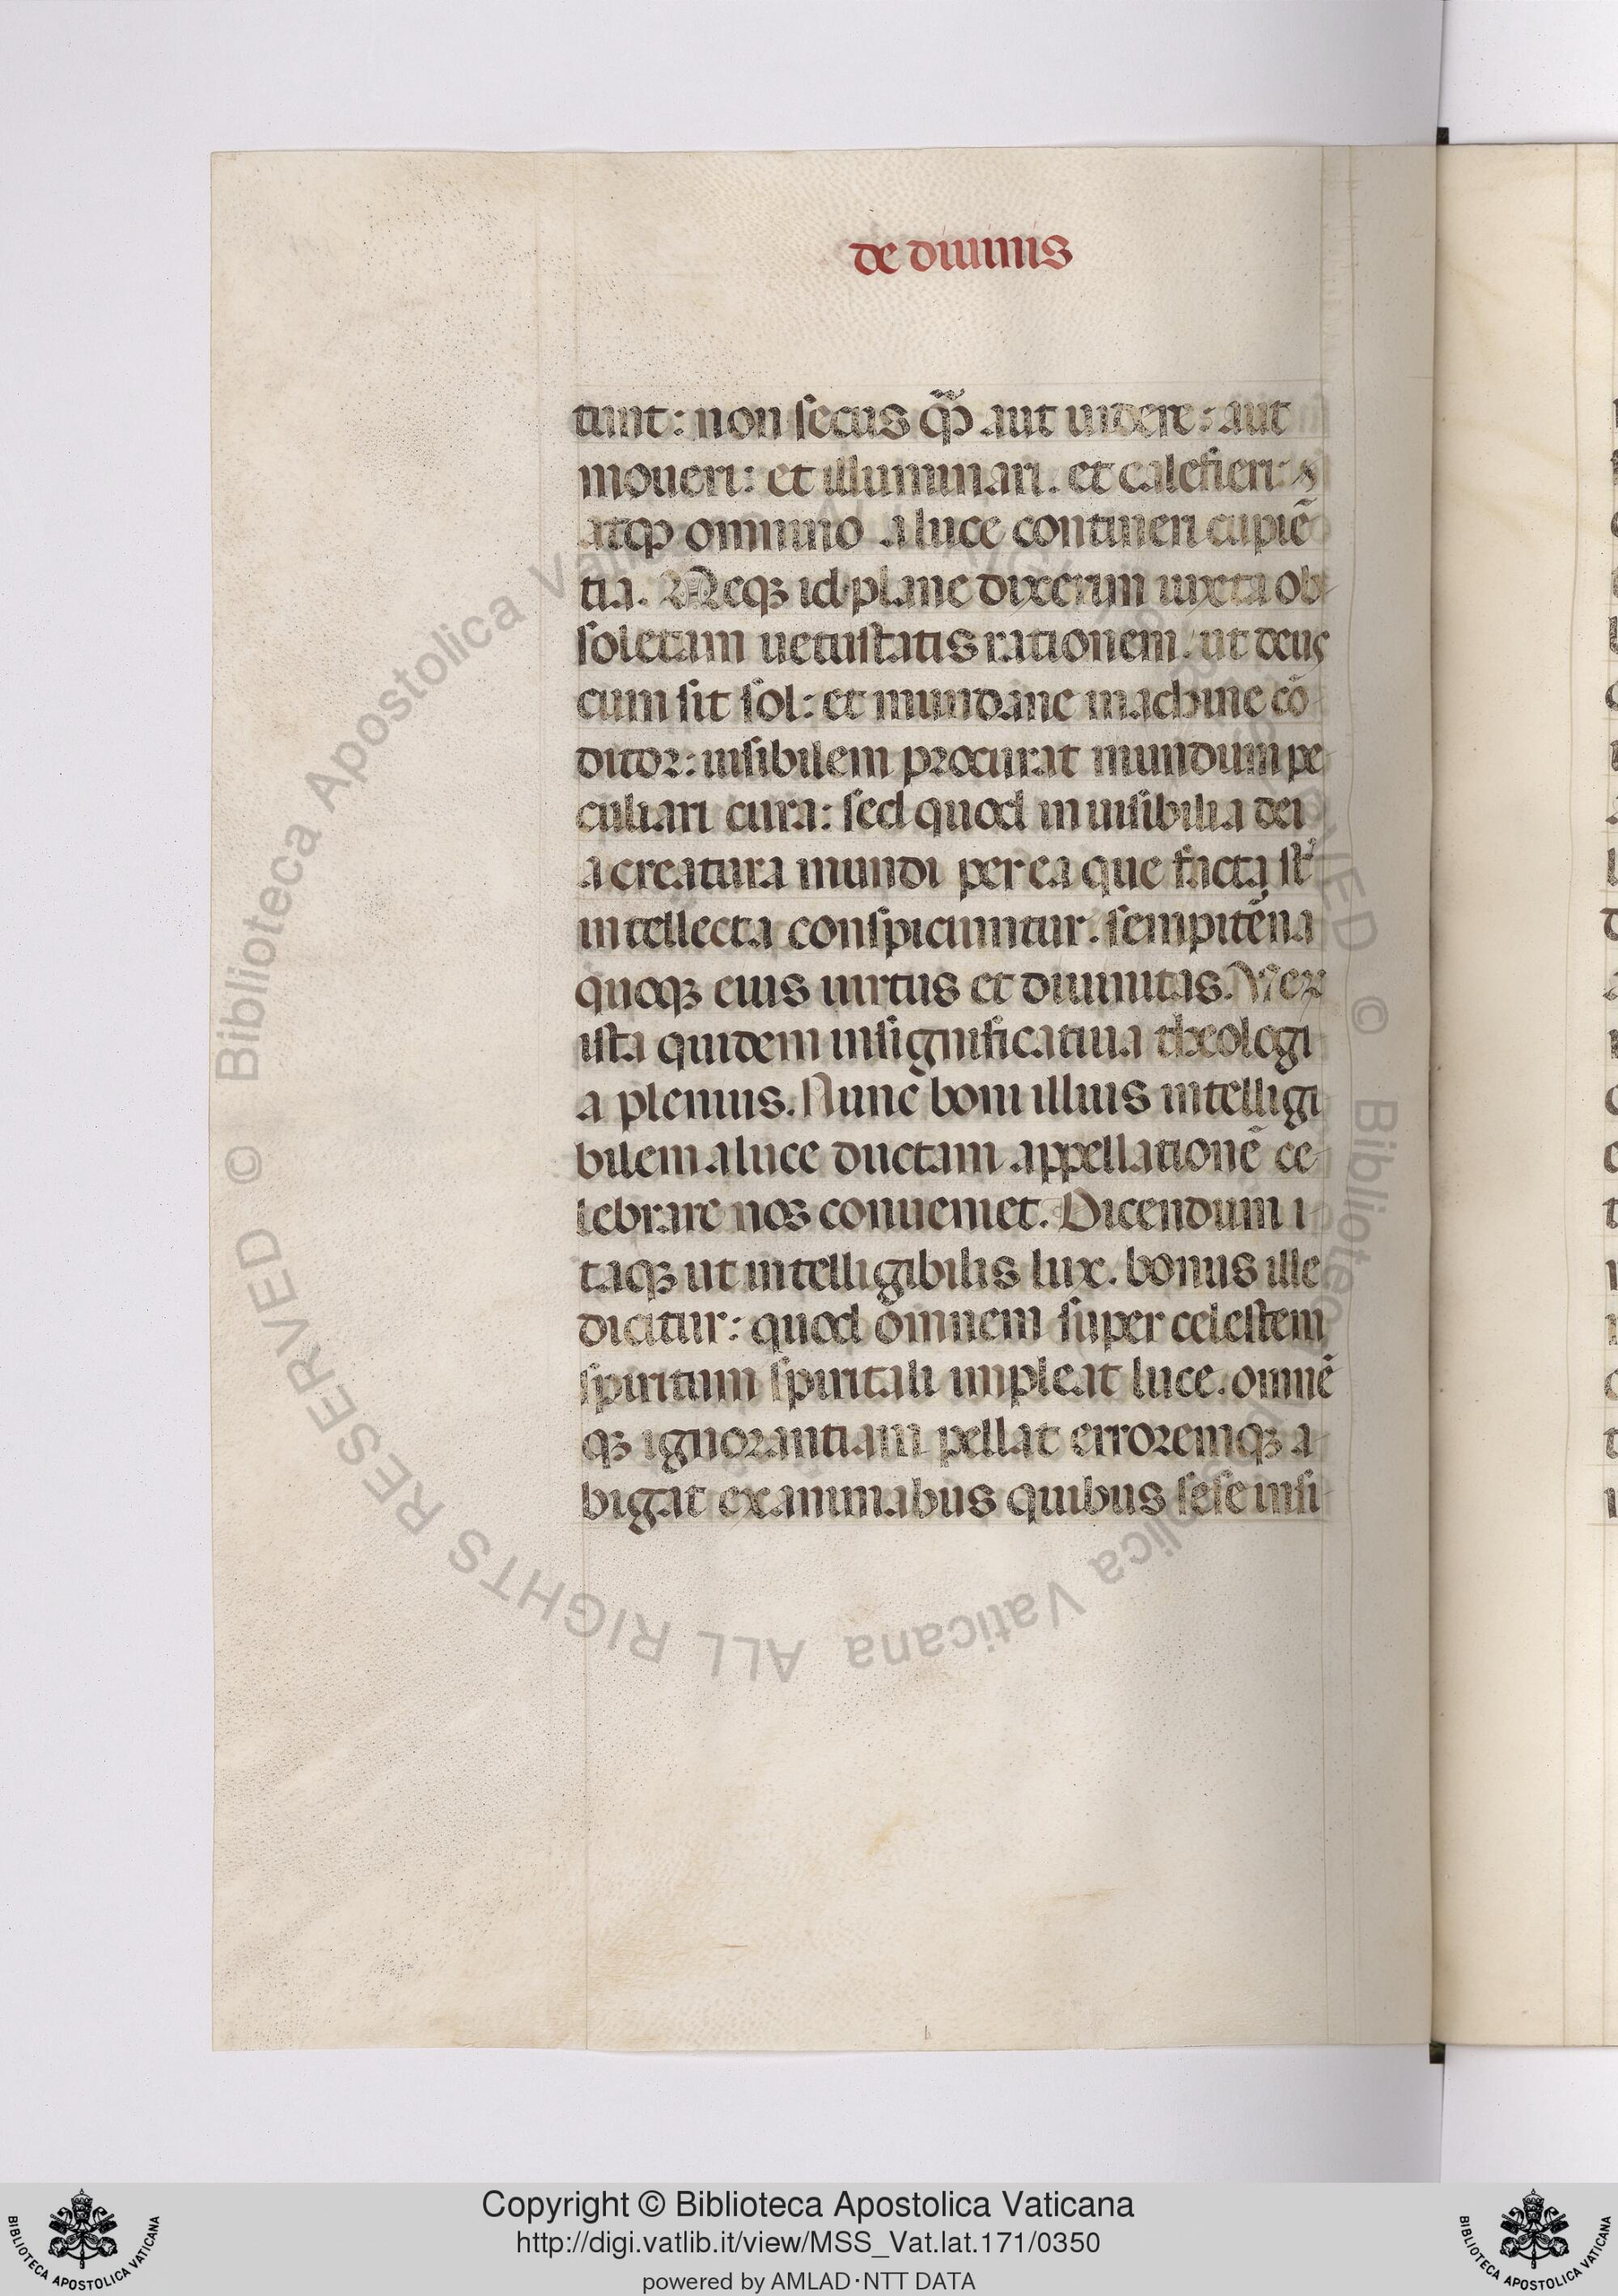 de diuinis
tunt: non secus qp̃ aut uidere: aut
moueri: et illuminari. et calefieri: s
atqꝫ omnino a luce contineri cupiẽ
tia. Neqꝫ id plane dixerim iuxta ob
soletam uetustatis rationem. ut deus
cum sit sol: et mundane machine cõ
ditor: uisibilem procurat mundum pe
culiari cura: sed quod inuisibilia dei
a creatura mundi per ea que facta st̃
intellecta conspiciuntur. sempitẽna
quoqꝫ eius uirtus et diuinitas. Veꝝ
ista quidem insignificatiua theologi
a plenius. Nunc boni illius intelligi
bilem a luce ductam appellationẽ ce
lebrare nos conueniet. Dicendum i
taqꝫ ut intelligibilis lux. bonus ille
dicitur: quod omnem super celestem
spiritum spiritali impleat luce. omnẽ
qꝫ ignorantiam pellat erroremqꝫ a
bigat ex animabus quibus sese insi
© Biblioteca Apostolica Vaticana ALL RIGHTS RESERVED
Copyright © Biblioteca Apostolica Vaticana
http://digi.vatlib.it/view/MSS_Vat.lat.171/0350
powered by AMLAD·NTT DATA
BIBLIOTECA APOSTOLICA VATICANA
BIBLIOTECA APOSTOLICA VATICANA